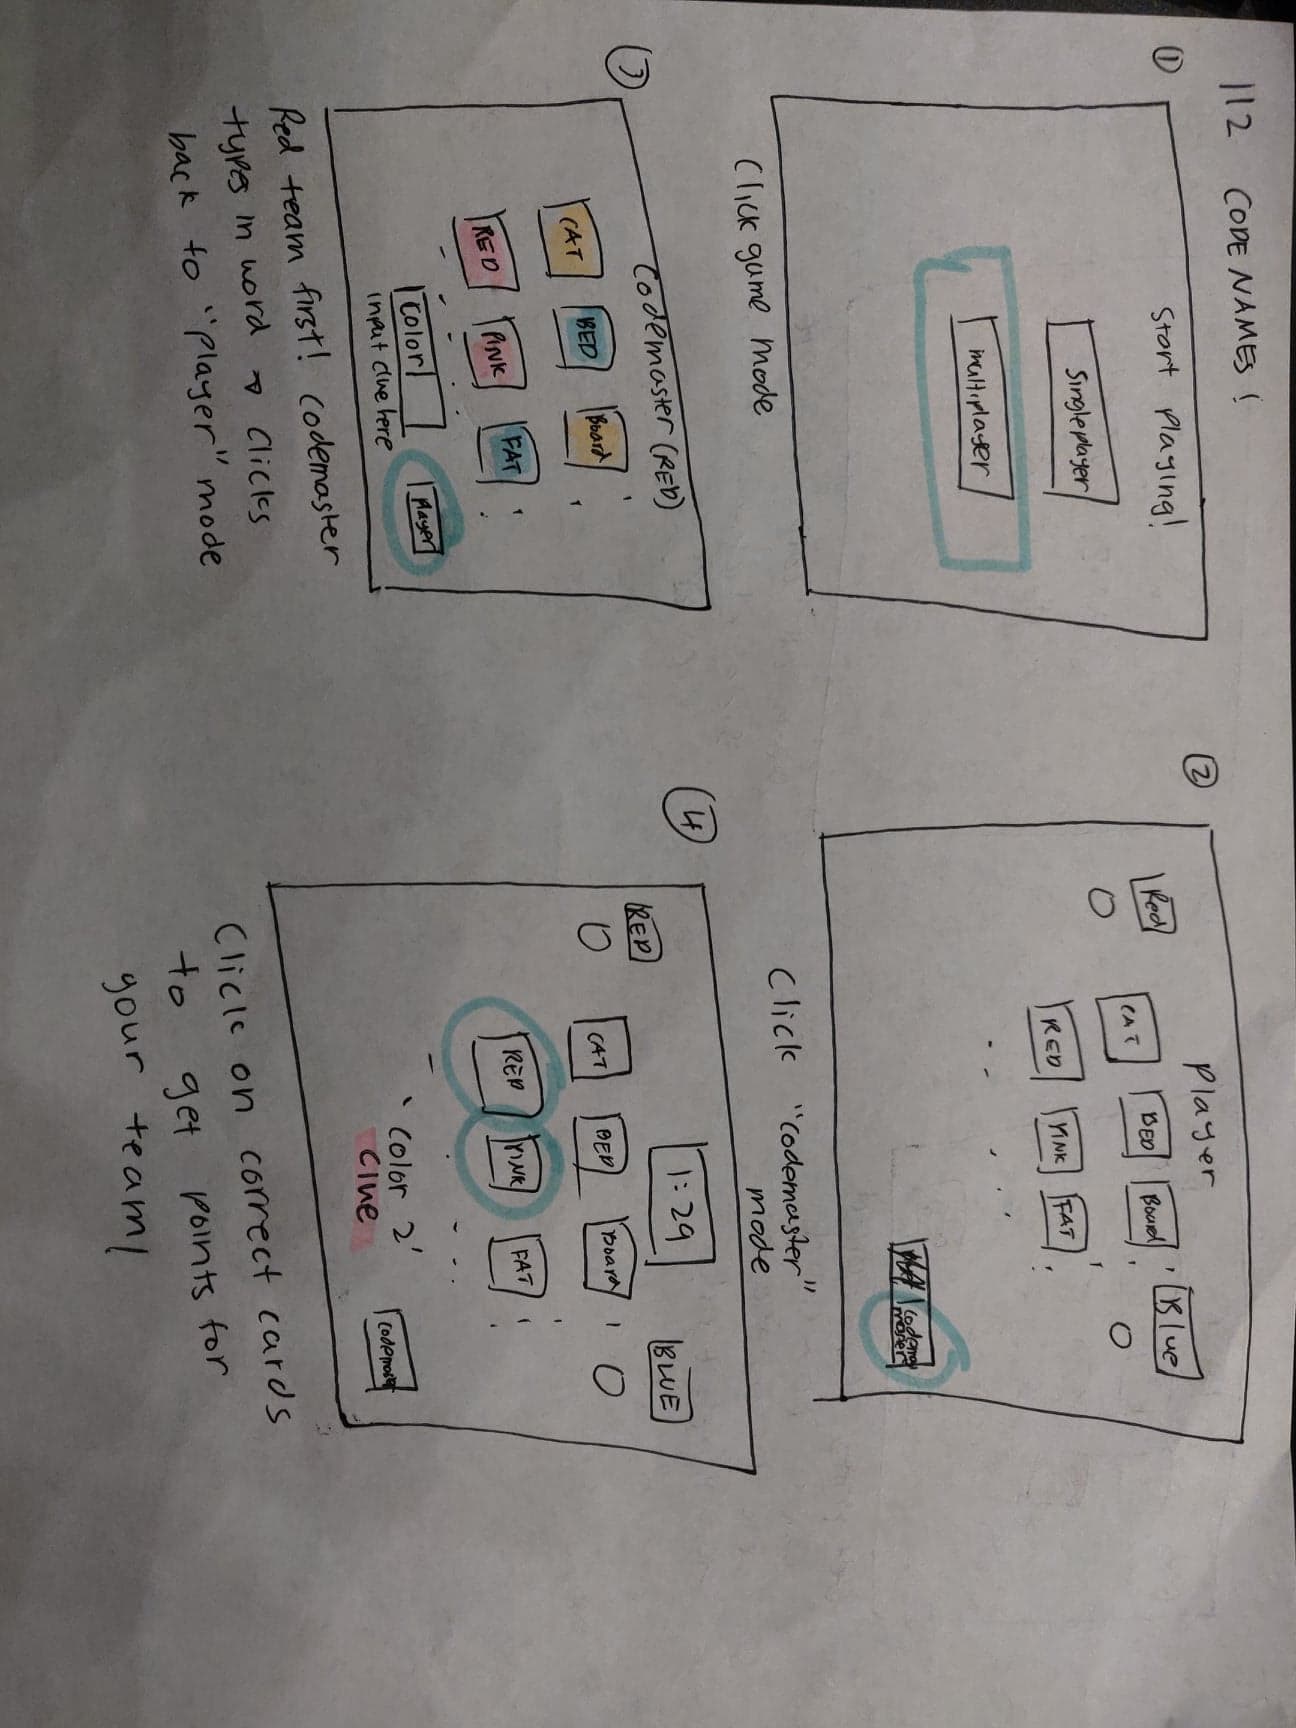 112 CODE NAMES!
①
Start Playing!
Singleplayer
multiplayer
Click game mode
②
Player
Red
Blue
0
0
CAT
BED
Board
RED
PINK
FAT
Click "codemaster"
mode
③
Codemaster (RED)
CAT
BED
Board
RED
PINK
FAT
Color
input clue here
Player
Red team first! Codemaster
types in word → clicks
back to "player" mode
④
RED
1:29
BLUE
0
0
CAT
BED
Board
RED
PINK
FAT
'Color 2'
Clue
Codemaster
Click on correct cards
to get points for
your team!